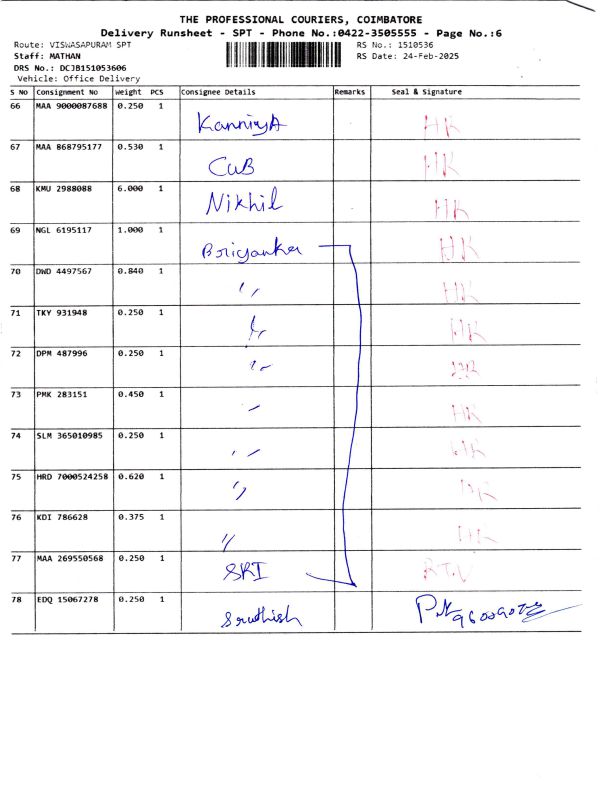 THE PROFESSIONAL COURIERS, COIMBATORE
Delivery Runsheet - SPT - Phone No.:0422-3505555 - Page No.:6
Route: VISWASAPURAM SPT RS No.: 1510536
Staff: MATHAN RS Date: 24-Feb-2025
DRS No.: DCJB151053606
Vehicle: Office Delivery
S No Consignment No Weight PCS Consignee Details Remarks Seal & Signature
66 MAA 9000087688 0.250 1 KanniyA HR
67 MAA 868795177 0.530 1 CUB HR
68 KMU 2988088 6.000 1 Nikhil HR
69 NGL 6195117 1.000 1 HR
70 DWD 4497567 0.840 1 〃 HR
71 TKY 931948 0.250 1 HR
72 DPM 487996 0.250 1
73 PMK 283151 0.450 1 HR
74 SLM 365010985 0.250 1 〃 HR
75 HRD 7000524258 0.620 1 〃 HR
76 KDI 786628 0.375 1 〃 HR
77 MAA 269550568 0.250 1 SRI
78 EDQ 15067278 0.250 1